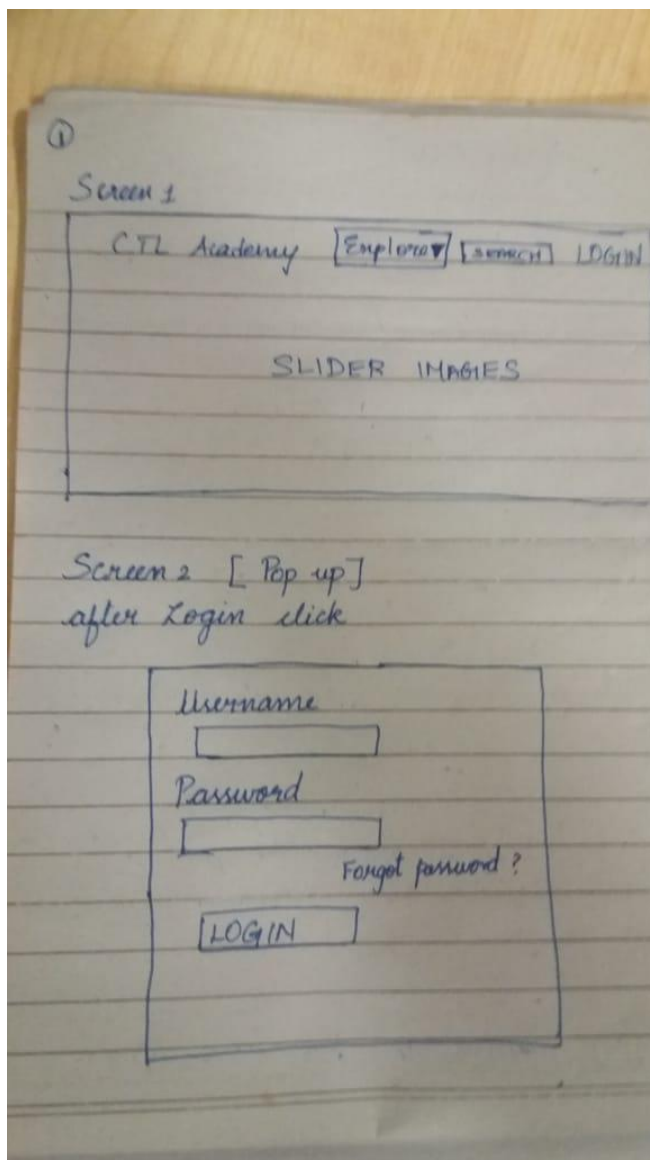 1
Screen 1
CTL Academy Explore▼ SEARCH LOGIN
SLIDER IMAGES
Screen 2 [ Pop up ]
after Login click
Username
Password
Forgot password ?
LOGIN